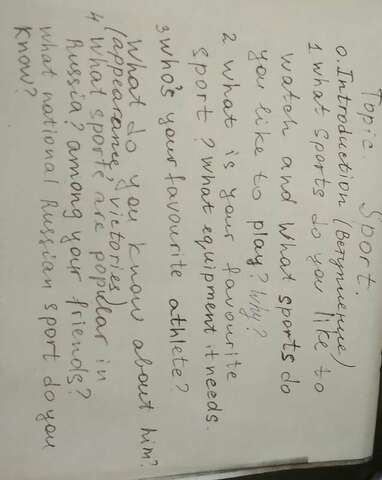 Topic. Sport.
0. Introduction (Вступление)
1 What sports do you like to
watch and What sports do
you like to play? Why?
2 What is your favourite
sport? What equipment it needs.
3 Who's your favourite athlete?
What do you know about him?
(appearance, victories)
4 What sports are popular in
Russia? among your friends?
What national Russian sport do you
know?